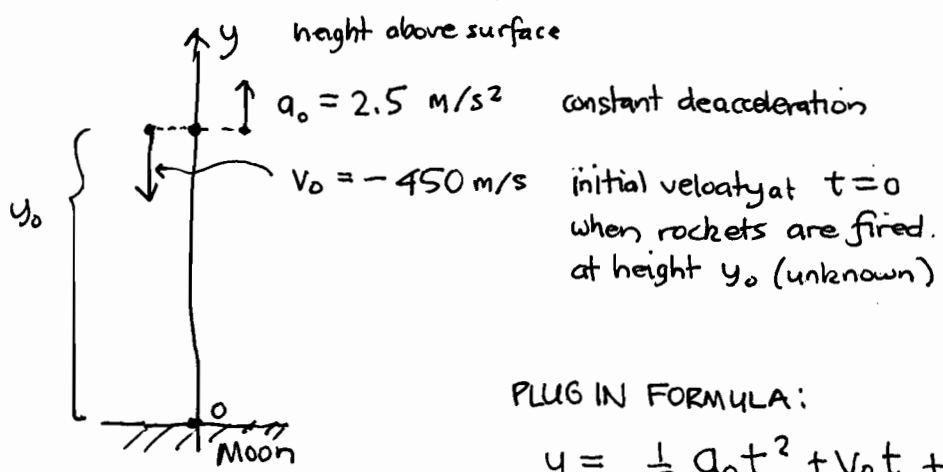 y height above surface
a₀ = 2.5 m/s² constant deacceleration
v₀ = -450 m/s initial velocity at t=0
when rockets are fired.
y₀
at height y₀ (unknown)
PLUG IN FORMULA:
0
Moon
y = ½ a₀t² + v₀t +